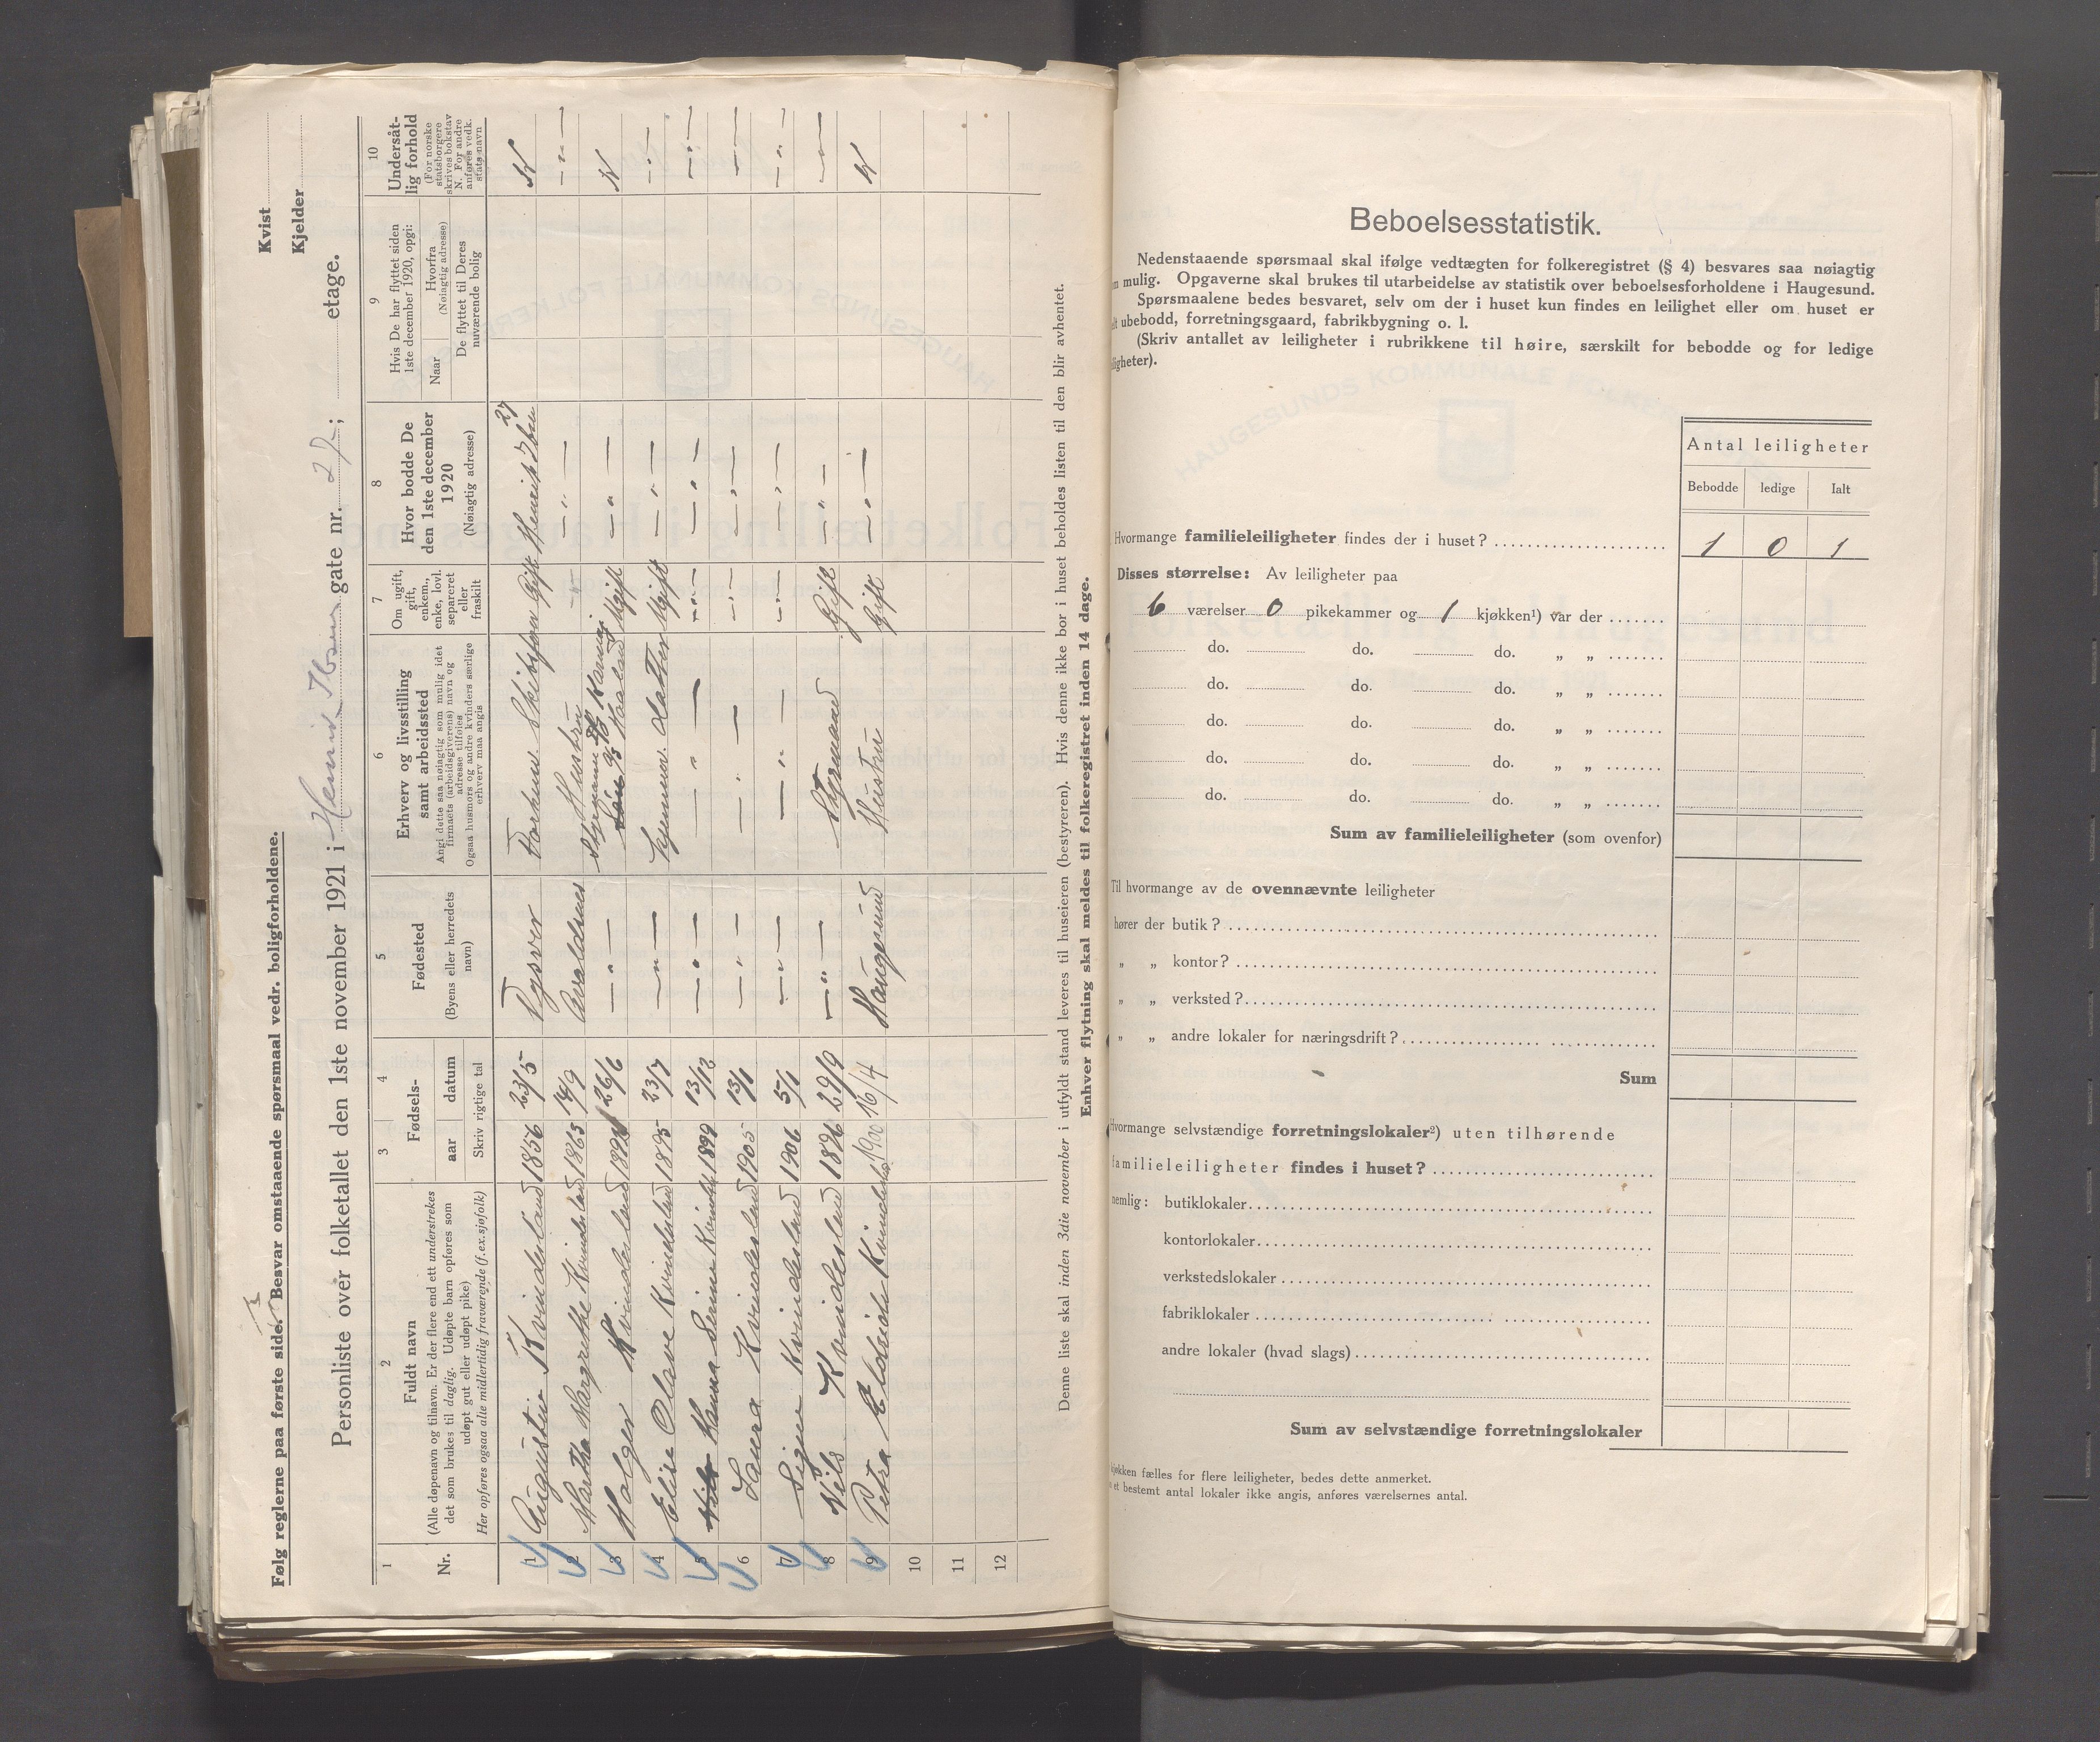 Følg reglerne paa første side. Besvar omstaaende spørsmaal vedr. boligforholdene.
Kvist
Kjelder
Personliste over folketallet den 1ste november 1921 i Henrik Ibsens gate nr. 27; etage.
1
Nr.
2
Fuldt navn
(Alle døpenavn og tilnavn. Er der flere end ett understrekes
det som brukes til daglig. Udøpte barn opføres som
udøpt gut eller udøpt pike)
Her opføres ogsaa alle midlertidig fraværende (f. ex. sjøfolk)
3
4
Fødsels-
aar
datum
Skriv rigtige tal
5
Fødested
(Byens eller herredets
navn)
6
Erhverv og livsstilling
samt arbeidssted
Angi dette saa nøiagtig som mulig idet
firmaets (arbeidsgiverens) navn og
adresse tilføies
Ogsaa husmors og andre kvinders særlige
erhverv maa angis
7
Om ugift,
gift,
enkem.,
enke, lovl.
separeret
eller
fraskilt
8
Hvor bodde De
den 1ste december
1920
(Nøiagtig adresse)
9
Hvis De har flyttet siden
1ste december 1920, opgi:
Naar
Hvorfra
(Nøiagtig adresse)
De flyttet til Deres
nuværende bolig
10
Undersåt-
lig forhold
(For norske
statsborgere
skrives bokstav
N. For andre
anføres vedk.
stats navn
1 Augustin Kvindesland 1856 23/5 Tysvær Forhenv. Skibsfører Gift Henrik Ibsen 27 N
2 Martha Margrethe Kvindesland 1863 14/9 Avaldsnes Hustru — " — — " — — " —
3 Holger Kvindesland 26/6 — " — Styrmand Ugift — " — N
4 Elise Olave Kvindesland 1895 23/7 — " — hjemmev. datter Ugift — " — — " —
5 Hanna Serine Kvindesl 1899 13/12 — " — — " — — " — — " — — " —
6 Laura Kvindesland 1905 13/1 — " — — " — — " — — " — — " —
7 Signe Kvindesland 1906 5/1 — " — — " — — " — — " — — " —
8 Nils Kvindesland 1896 29/9 — " — Styrmand Gift — " — — " —
9 Petra Kvindesland 1900 16/4 Haugesund Hustru Gift — " — N
10
11
12
Denne liste skal inden 3die november i utfyldt stand leveres til huseieren (bestyreren). Hvis denne ikke bor i huset beholdes listen til den blir avhentet.
Enhver flytning skal meldes til folkeregistret inden 14 dage.
Beboelsesstatistik.
Nedenstaaende spørsmaal skal ifølge vedtægten for folkeregistret (§ 4) besvares saa nøiagtig
mulig. Opgaverne skal brukes til utarbeidelse av statistik over beboelsesforholdene i Haugesund.
Spørsmaalene bedes besvaret, selv om der i huset kun findes en leilighet eller om huset er
ubebodd, forretningsgaard, fabrikbygning o. l.
(Skriv antallet av leiligheter i rubrikkene til høire, særskilt for bebodde og for ledige
ligheter).
Antal leiligheter
Bebodde ledige Ialt
Hvormange familieleiligheter findes der i huset? 1 0 1
Disses størrelse: Av leiligheter paa
6 værelser 0 pikekammer og 1 kjøkken¹) var der
do. do. do. „ „
do. do. do. „ „
do. do. do. „ „
do. do. do. „ „
do. do. do. „ „
Sum av familieleiligheter (som ovenfor)
Til hvormange av de ovennævnte leiligheter
hører der butik?
„ „ kontor?
„ „ verksted?
„ „ andre lokaler for næringsdrift?
Sum
Hvormange selvstændige forretningslokaler²) uten tilhørende
familieleiligheter findes i huset?
nemlig: butiklokaler
kontorlokaler
verkstedslokaler
fabriklokaler
andre lokaler (hvad slags)
Sum av selvstændige forretningslokaler
kjøkken fælles for flere leiligheter, bedes dette anmerket.
et bestemt antal lokaler ikke angis, anføres værelsernes antal.